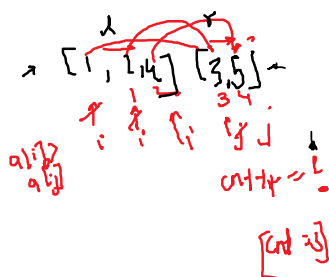 l r
[1, 2,4] [3,5]
1 2 3 4
i i i j j
a[i]>
a[j]
cnt+=
[cnt =3]